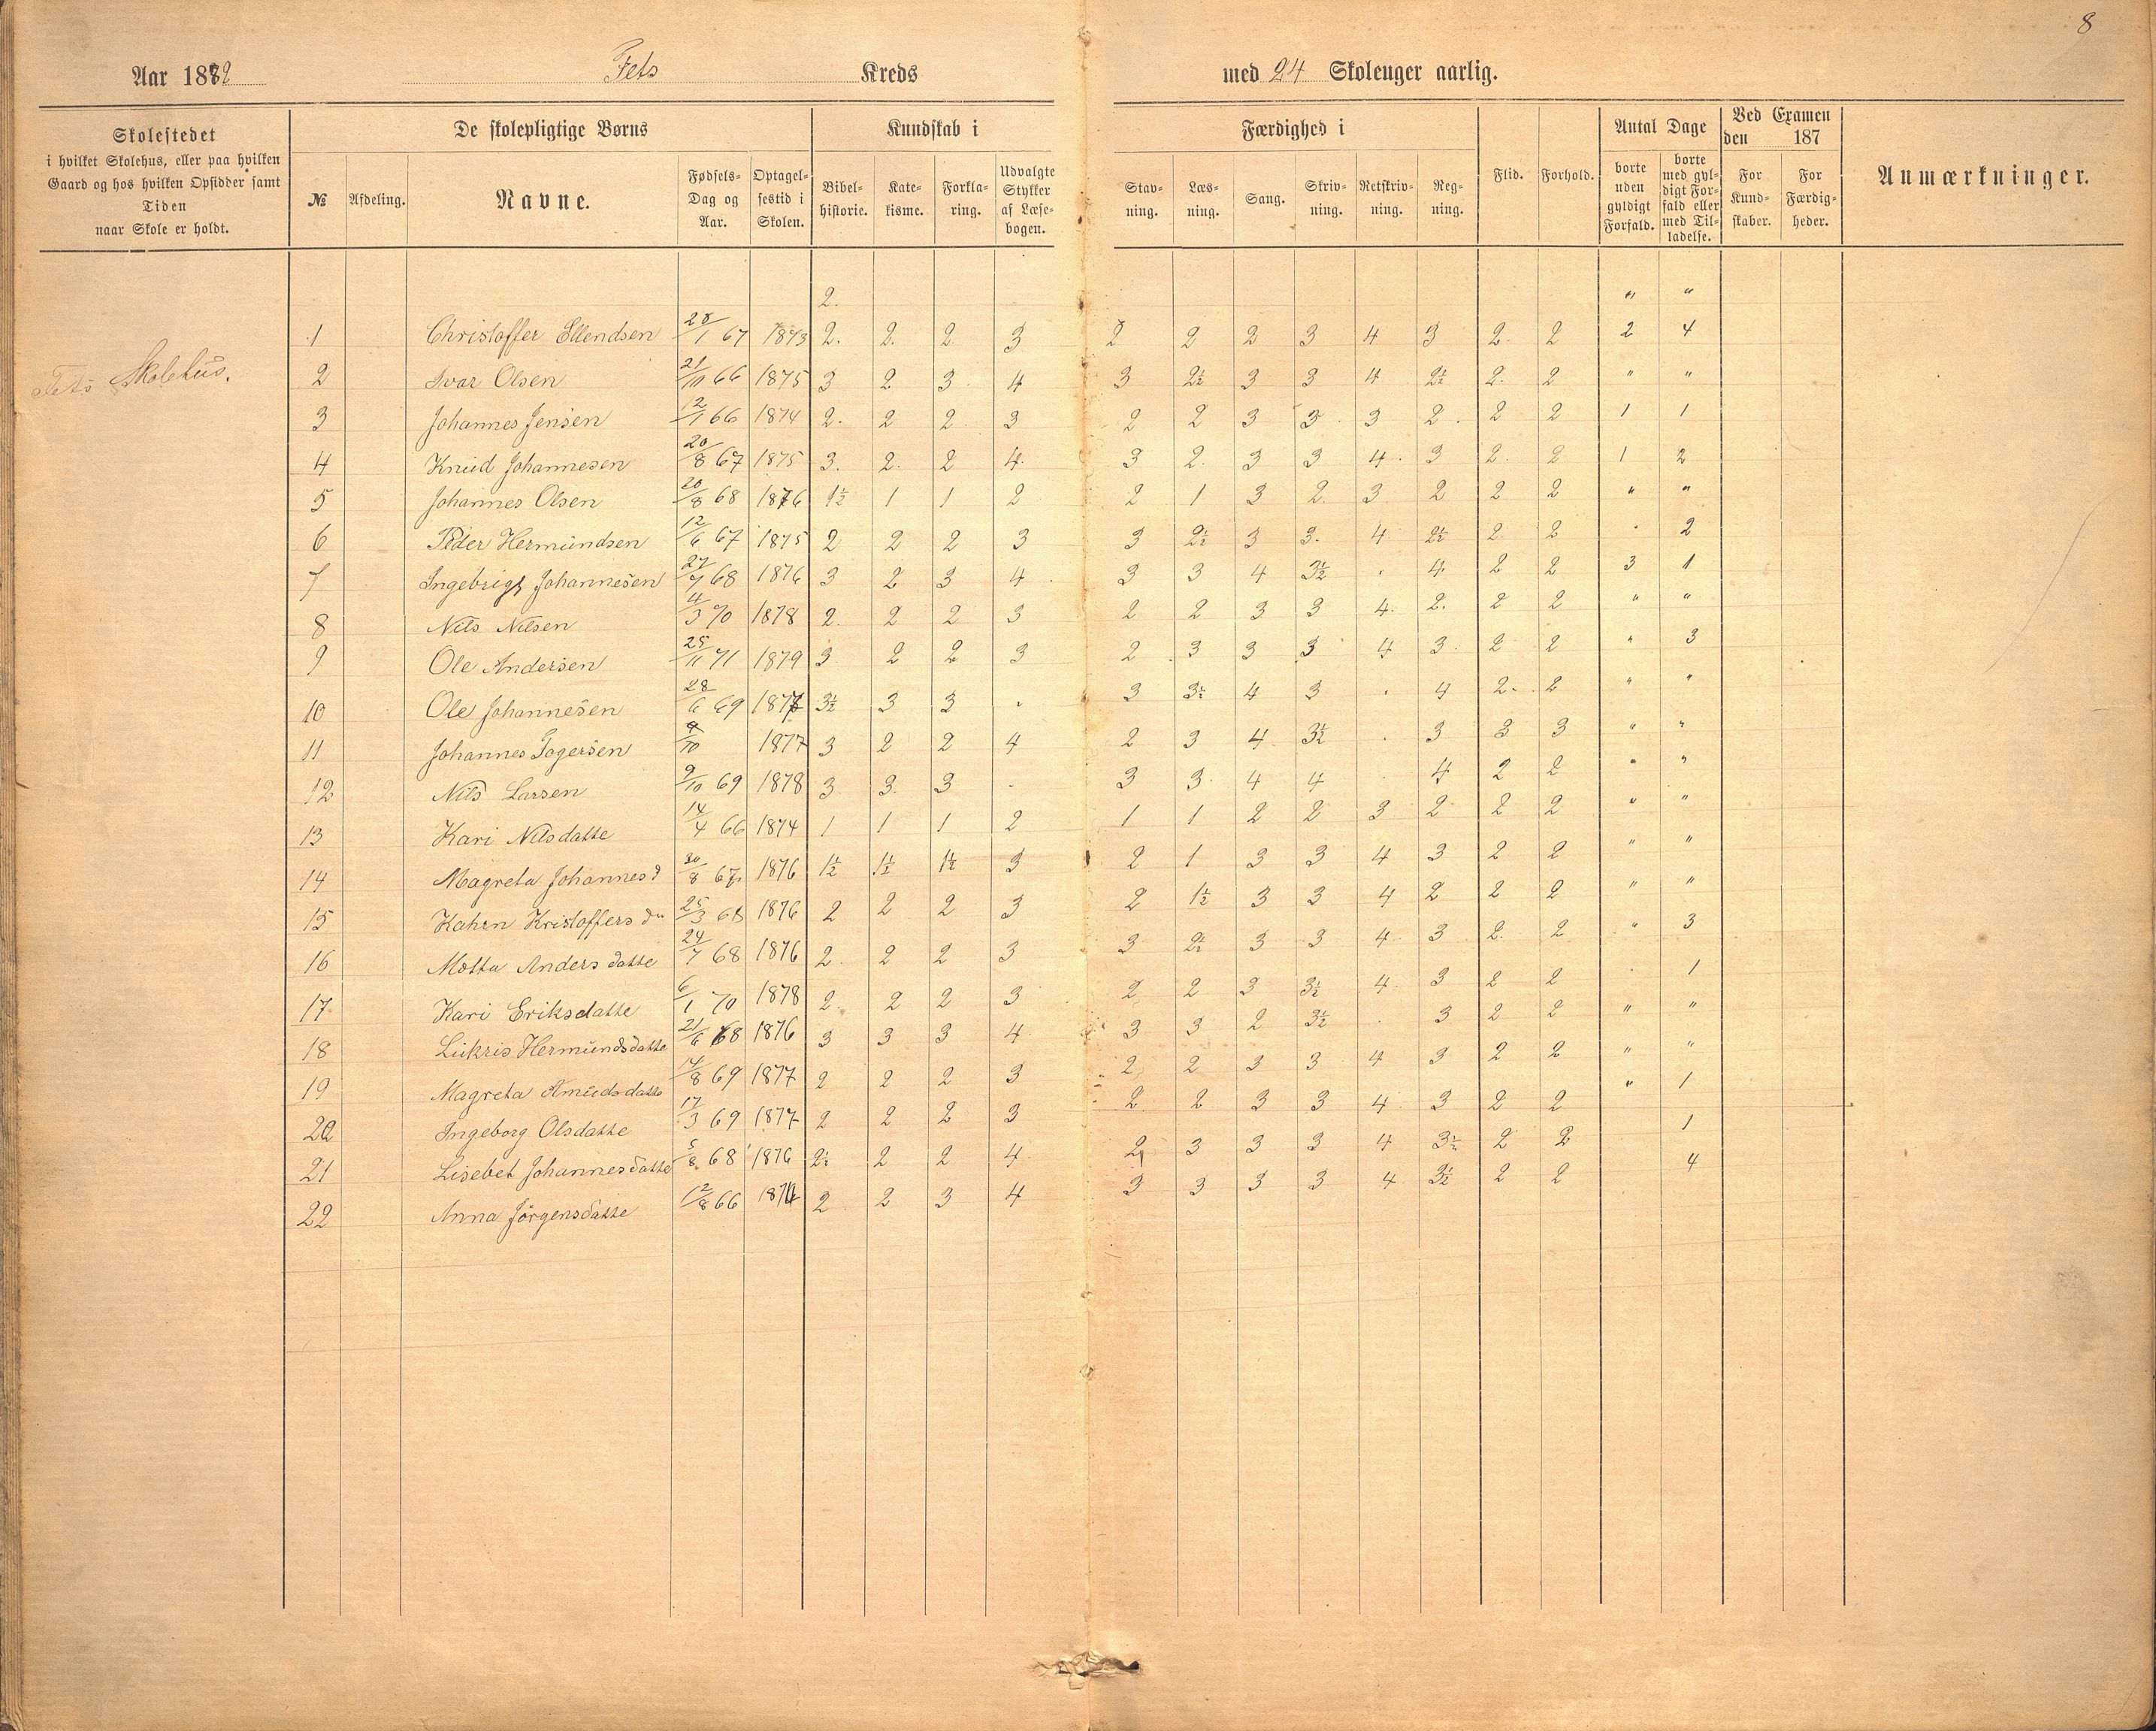 8
Aar 1882 Fets Kreds med 24 Skoleuger aarlig.
Skolestedet i hvilket Skolehus, eller paa hvilken Gaard og hos hvilken Opsidder samt Tiden naar Skole er holdt.
De skolepligtige Børns
№ Afdeling. Navne. Fødsels-Dag og Aar. Optagel-sestid i Skolen.
Kundskab i
Bibel-historie. Kate-kisme. Forkla-ring. Udvalgte Stykker af Læse-bogen.
Færdighed i
Stav-ning. Læs-ning. Sang. Skriv-ning. Retskriv-ning. Reg-ning.
Flid. Forhold.
Antal Dage
borte uden gyldigt Forfald. borte med gyl-digt For-fald eller med Til-ladelse.
Ved Examen den 187
For Kund-skaber. For Færdig-heder.
Anmærkninger.
2. " "
Fets Skolehus.
1 Christoffer Ellendsen 28/1 67 1873 2. 2. 2. 3 2 2 2 3 4 3 2. 2 2 4
2 Ivar Olsen 21/10 66 1875 3 2 3 4 3 2½ 3 3 4 2½ 2. 2 " "
3 Johannes Jensen 12/1 66 1874 2. 2 2 3 2 2 3 3 3 2 2 2 1 1
4 Knud Johannesen 20/8 67 1875 3. 2. 2 4. 3 2. 3 3 4. 3 2. 2 1 2
5 Johannes Olsen 20/8 68 1876 1½ 1 1 2 2 1 3 2. 3 2 2 2 " "
6 Peder Hermundsen 12/6 67 1875 2 2 2 3 3 2½ 3 3. 4 2½ 2 2 . 2
7 Ingebrigt Johannesen 27/7 68 1876 3 2 3 4 3 3 4 3½ . 4. 2 2 3 1
8 Nils Nilsen 4/3 70 1878 2. 2 2 3 2 2 3 3 4. 2. 2 2 " "
9 Ole Andersen 25/11 71 1879 3 2 2 3 2 3 3 3 4 3. 2 2 " 3
10 Ole Johannesen 28/6 69 1877 3½ 3 3 . 3 3½ 4 3 . 4 2. 2 " "
11 Johannes Togersen 1877 3 2 2 4 2 3 4 3½ . 3 3 3 " "
12 Nils Larsen 9/10 69 1878 3 3. 3 . 3 3. 4 4 4 2 2 " "
13 Kari Nilsdatte 14/4 66 1874 1 1 1 2 1 1 2 2 3 2 2 2 " "
14 Magreta Johannesd 30/8 67 1876 1½ 1½ 1½ 3 2 1 3 3 4 3 2 2 " "
15 Kahrn Kristoffers dn 25/3 68 1876 2 2 2 3 2 1½ 3 3 4 2 2 2 " "
16 Motta Anders datte 24/7 68 1876 2. 2 2 3 3 2½ 3 3 4 3 2. 2 " 3
17 Kari Eriksdatte 6/1 70 1878 2. 2 2 3 2 2 3 3½ 4 3 2 2 . 1
18 Lukris Hermundsdatte 21/6 68 1876 3 3 3 4 3 3 2 3½ . 3 2 2 " "
19 Magreta Amundsdatte 8 69 1877 2 2 2 3 2 2 3 3 4 3 2 2 " "
20 Ingeborg Olsdatte 17/3 69 1877 2 2 2 3 2 2 3 3 4 3 2 2 " 1
21 Lisebet Johannesdatte 5/8 68 1876 2½ 2 2 4 2 3 3 3 4 3½ 2 2 1
22 Anna Jörgensdatte 12/8 66 1874 2 2 3 4 3 3 3 3 4 3½ 2 2 4